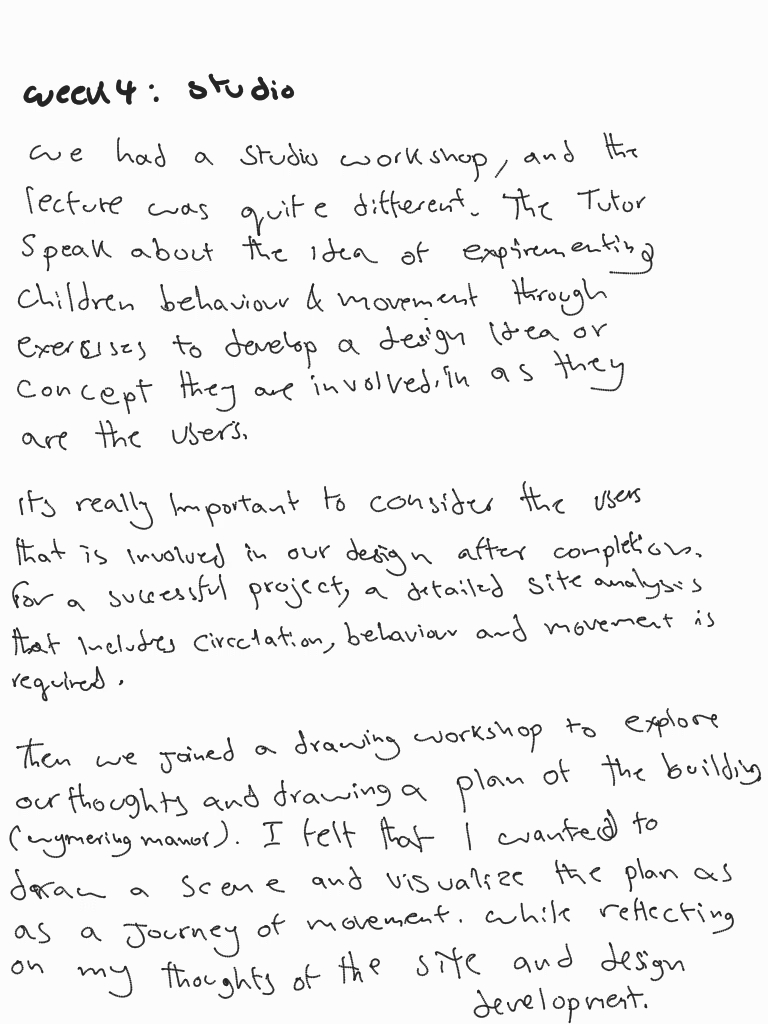 week 4: studio
we had a studio workshop, and the
lecture was quite different. The Tutor
Speak about the idea of expirementing
children behaviour & movement through
exersises to develop a design idea or
concept they are involved in as they
are the users.
its really important to consider the users
that is involved in our design after completion.
For a successful project, a detailed site analysis
that includes circulation, behaviour and movement is
required.
Then we joined a drawing workshop to explore
our thoughts and drawing a plan of the building
(wymering manor). I felt that I wanted to
draw a scene and visualize the plan as
as a journey of movement. while reflecting
on my thoughts of the site and design
development.